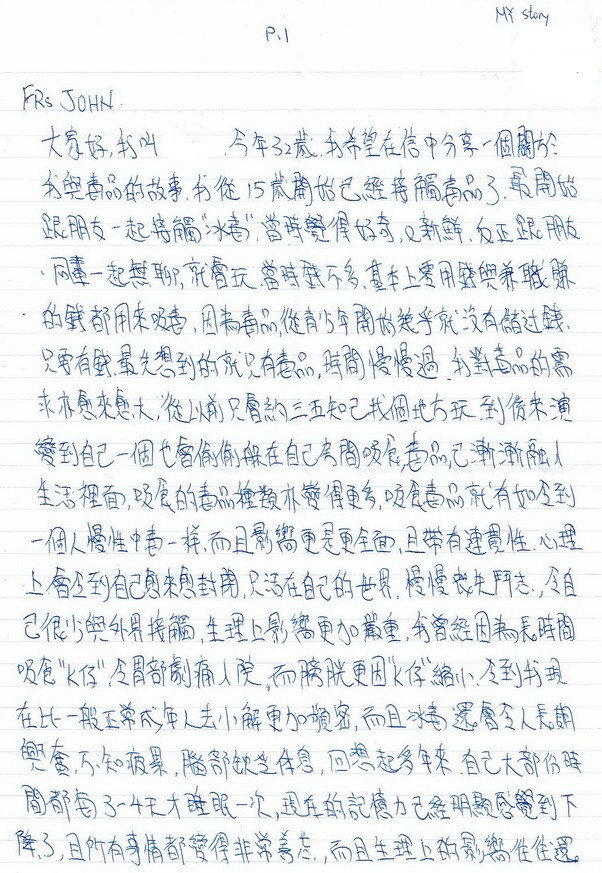 MY story
P.1
FRs JOHN.
大家好,我叫 今年32歲.我希望在信中分享一個關於
我與毒品的故事.我從15歲開始已經接觸毒品了.最開始
跟朋友一起接觸"冰毒".當時覺得好奇,新鮮.反正跟朋友
一起無聊,就會玩.當時錢不多,基本上零用錢與兼職賺
的錢都用來吸毒.因為毒品,從青少年開始幾乎就沒有儲过錢.
只要有錢最先想到的就只有毒品,時間慢慢過.我對毒品的需
求亦愈來愈大,從以前只會約三五知己找個地方玩.到後來演
變到自己一個也會偷偷躲在自己房間吸食毒品,已漸漸融入
生活裡面,吸食的毒品種類亦變得更多,吸食毒品就有如令到
一個人慢性中毒一样,而且影嚮更是更全面,且帶有連貫性.心理
上會令到自己愈來愈封閉,只活在自己的世界,慢慢喪失鬥志,令自
己很少與外界接觸,生理上影嚮更加嚴重,我曾經因為長時間
吸食"K仔",令胃部劇痛入院,而膀胱更因"K仔"縮小.令到我現
在比一般正常成年人去小解更加頻密,而且冰毒還會令人長期
興奮,不知疲累,腦部缺乏休息,回想起多年來.自己大部份時
間都每3-4天才睡眠一次,現在的記憶力已經明顯感覺到下
降了,且所有事情都變得非常善忘,而且生理上的影嚮往往還